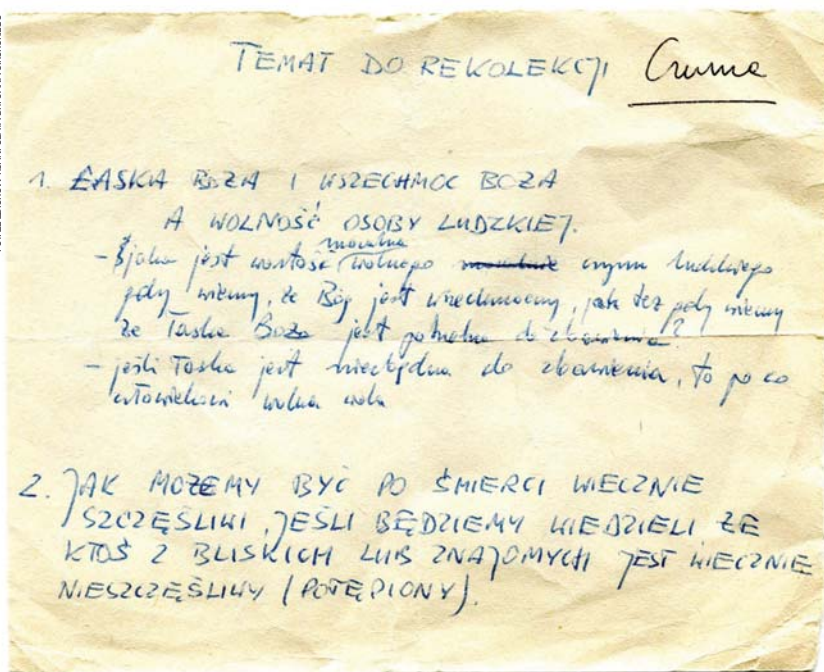 TEMAT DO REKOLEKCJI Czuma
1. ŁASKA BOŻA I WSZECHMOC BOŻA
A WOLNOŚĆ OSOBY LUDZKIEJ.
moralna
- jaka jest wartość wolnego czynu ludzkiego
gdy wiemy, że Bóg jest wszechmocny, jak też gdy wiemy
że Łaska Boża jest potrzebna do zbawienia?
- jeśli Łaska jest niezbędna do zbawienia, to po co
człowiekowi wolna wola
2. JAK MOŻEMY BYĆ PO ŚMIERCI WIECZNIE
SZCZĘŚLIWI, JEŚLI BĘDZIEMY WIEDZIELI ŻE
KTOŚ Z BLISKICH LUB ZNAJOMYCH JEST WIECZNIE
NIESZCZĘŚLIWY (POTĘPIONY).